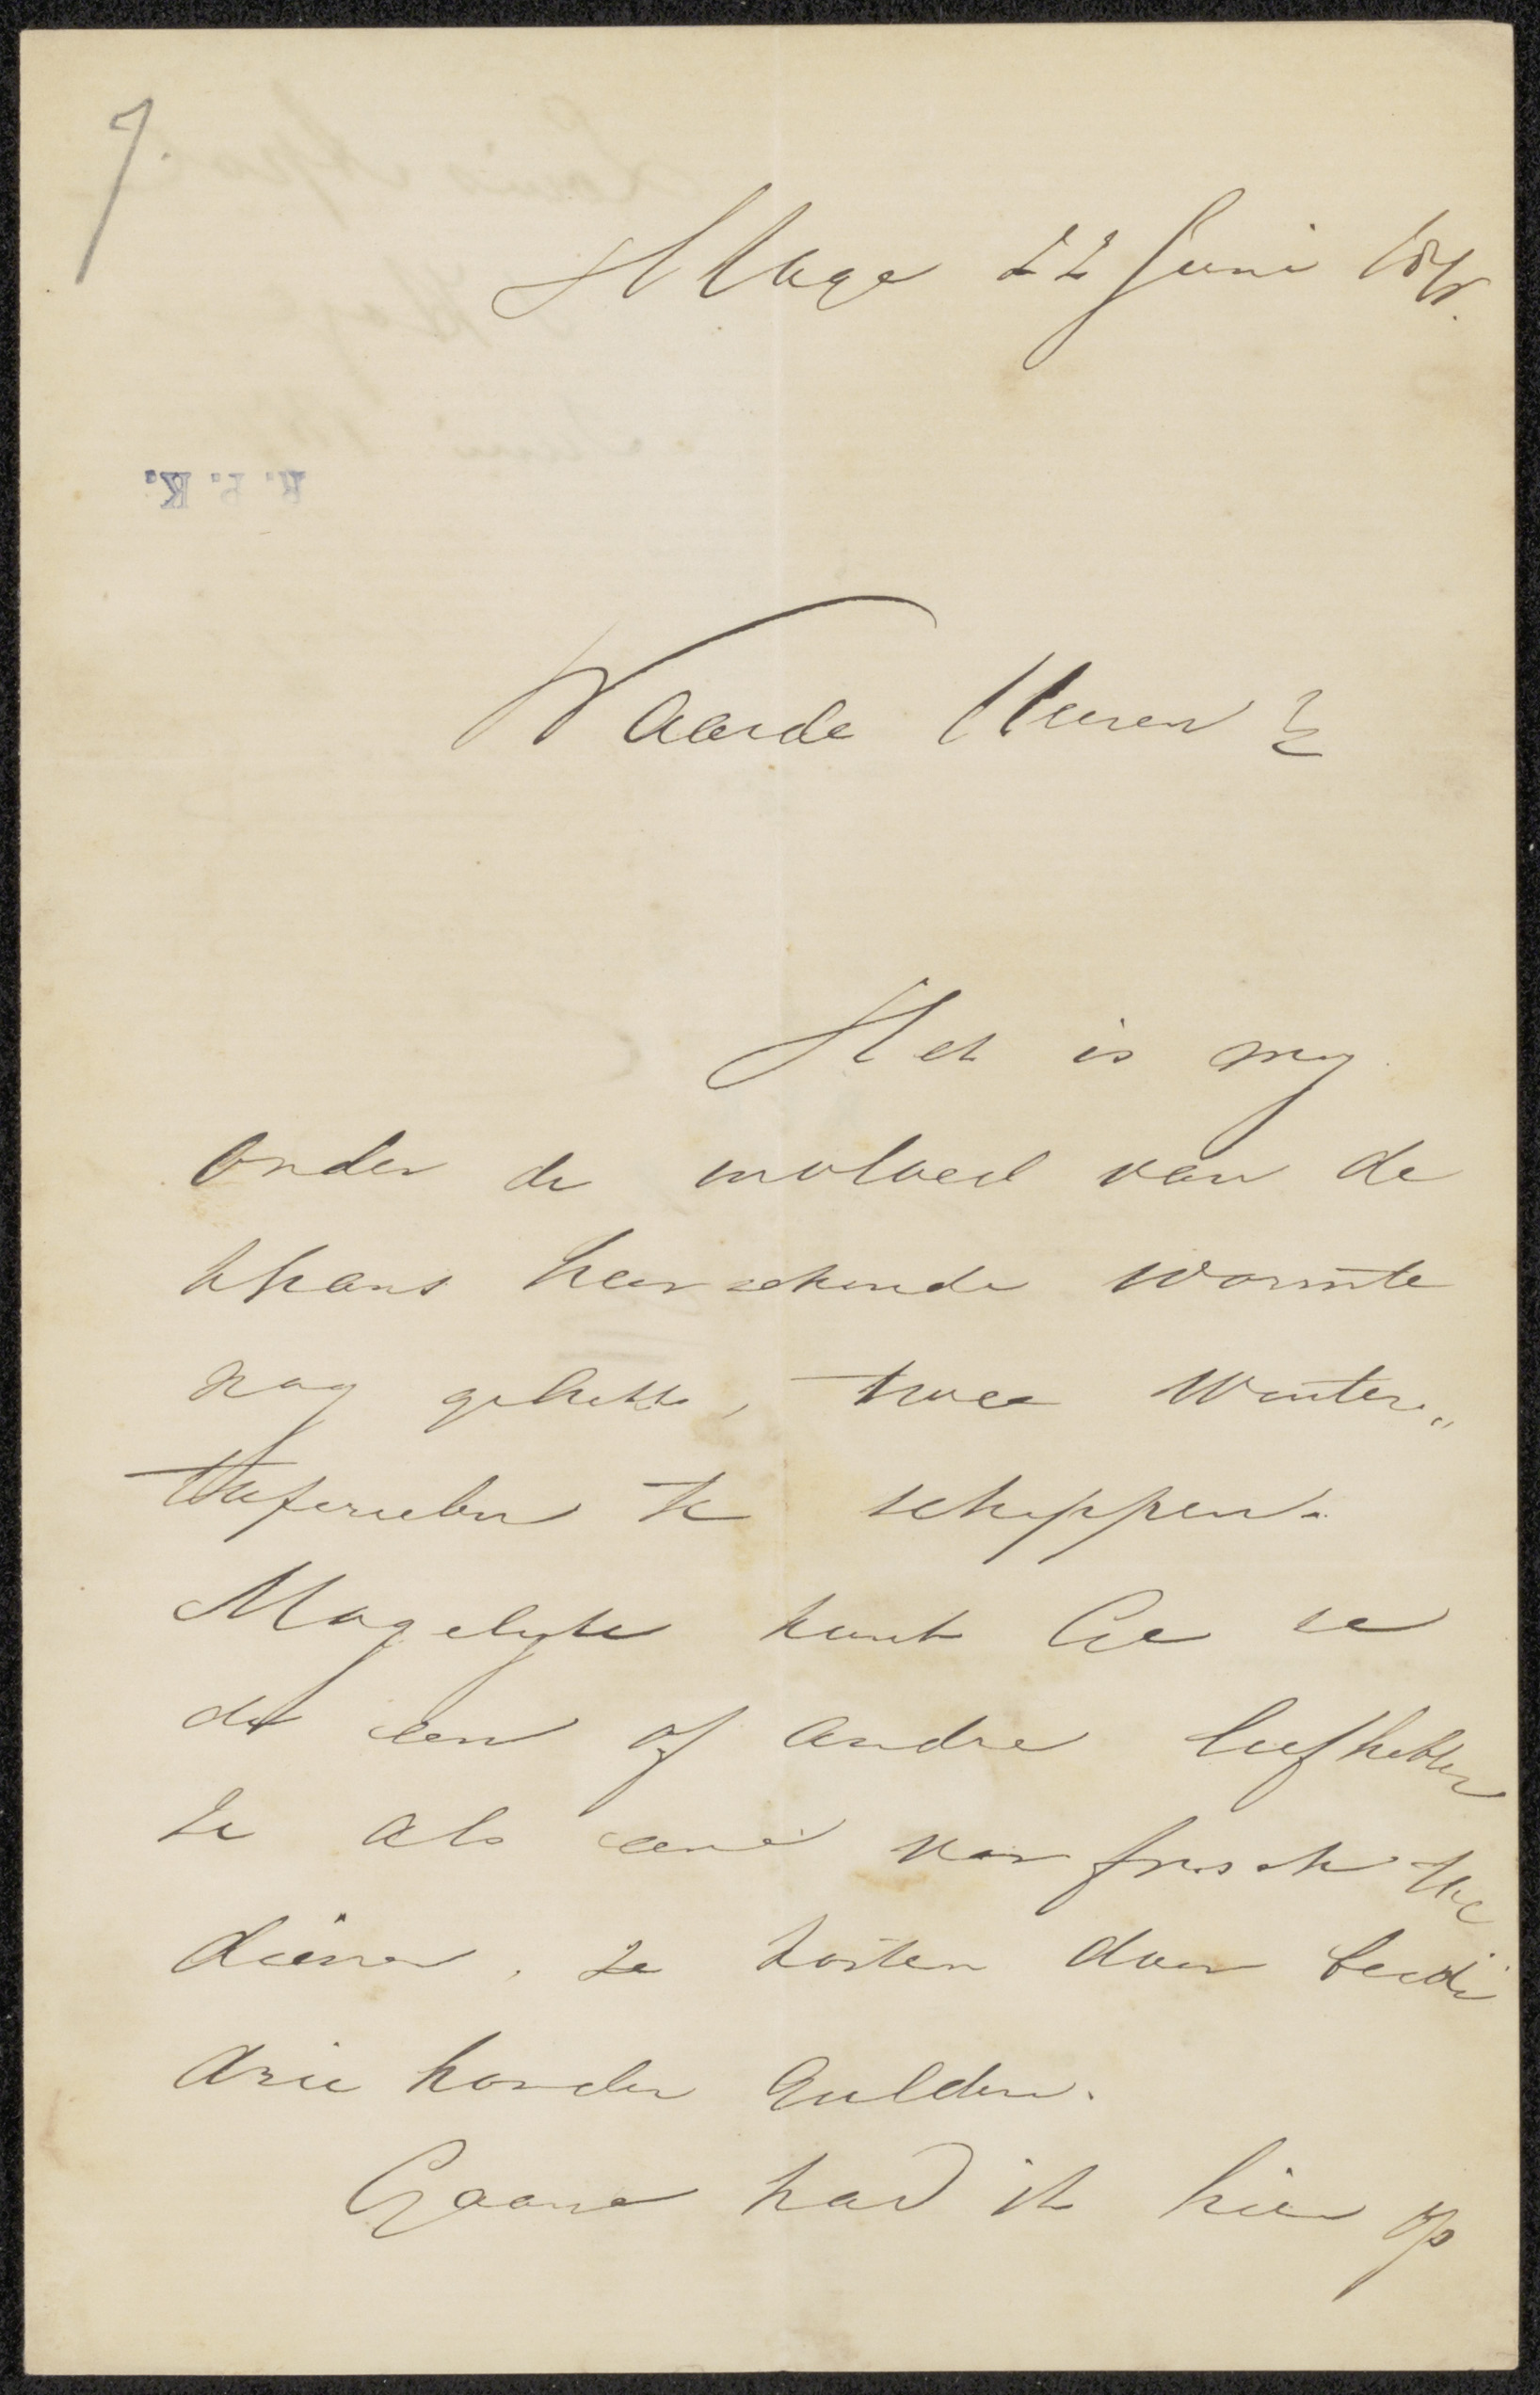 7.
sHage 22 Juni
R. P. K.
Waarde Heeren
Het is my
onder de invloed van de
thans heerschende warmte
nog gelukt, twee Winter„
tafereelen te scheppen.
Mogelyk kunt Ge ze
de een of andre liefhebber
ze als eene verfrissching toe
dienen, ze kosten door beide
drie honder Gulden.
Gaarne had ik hier op